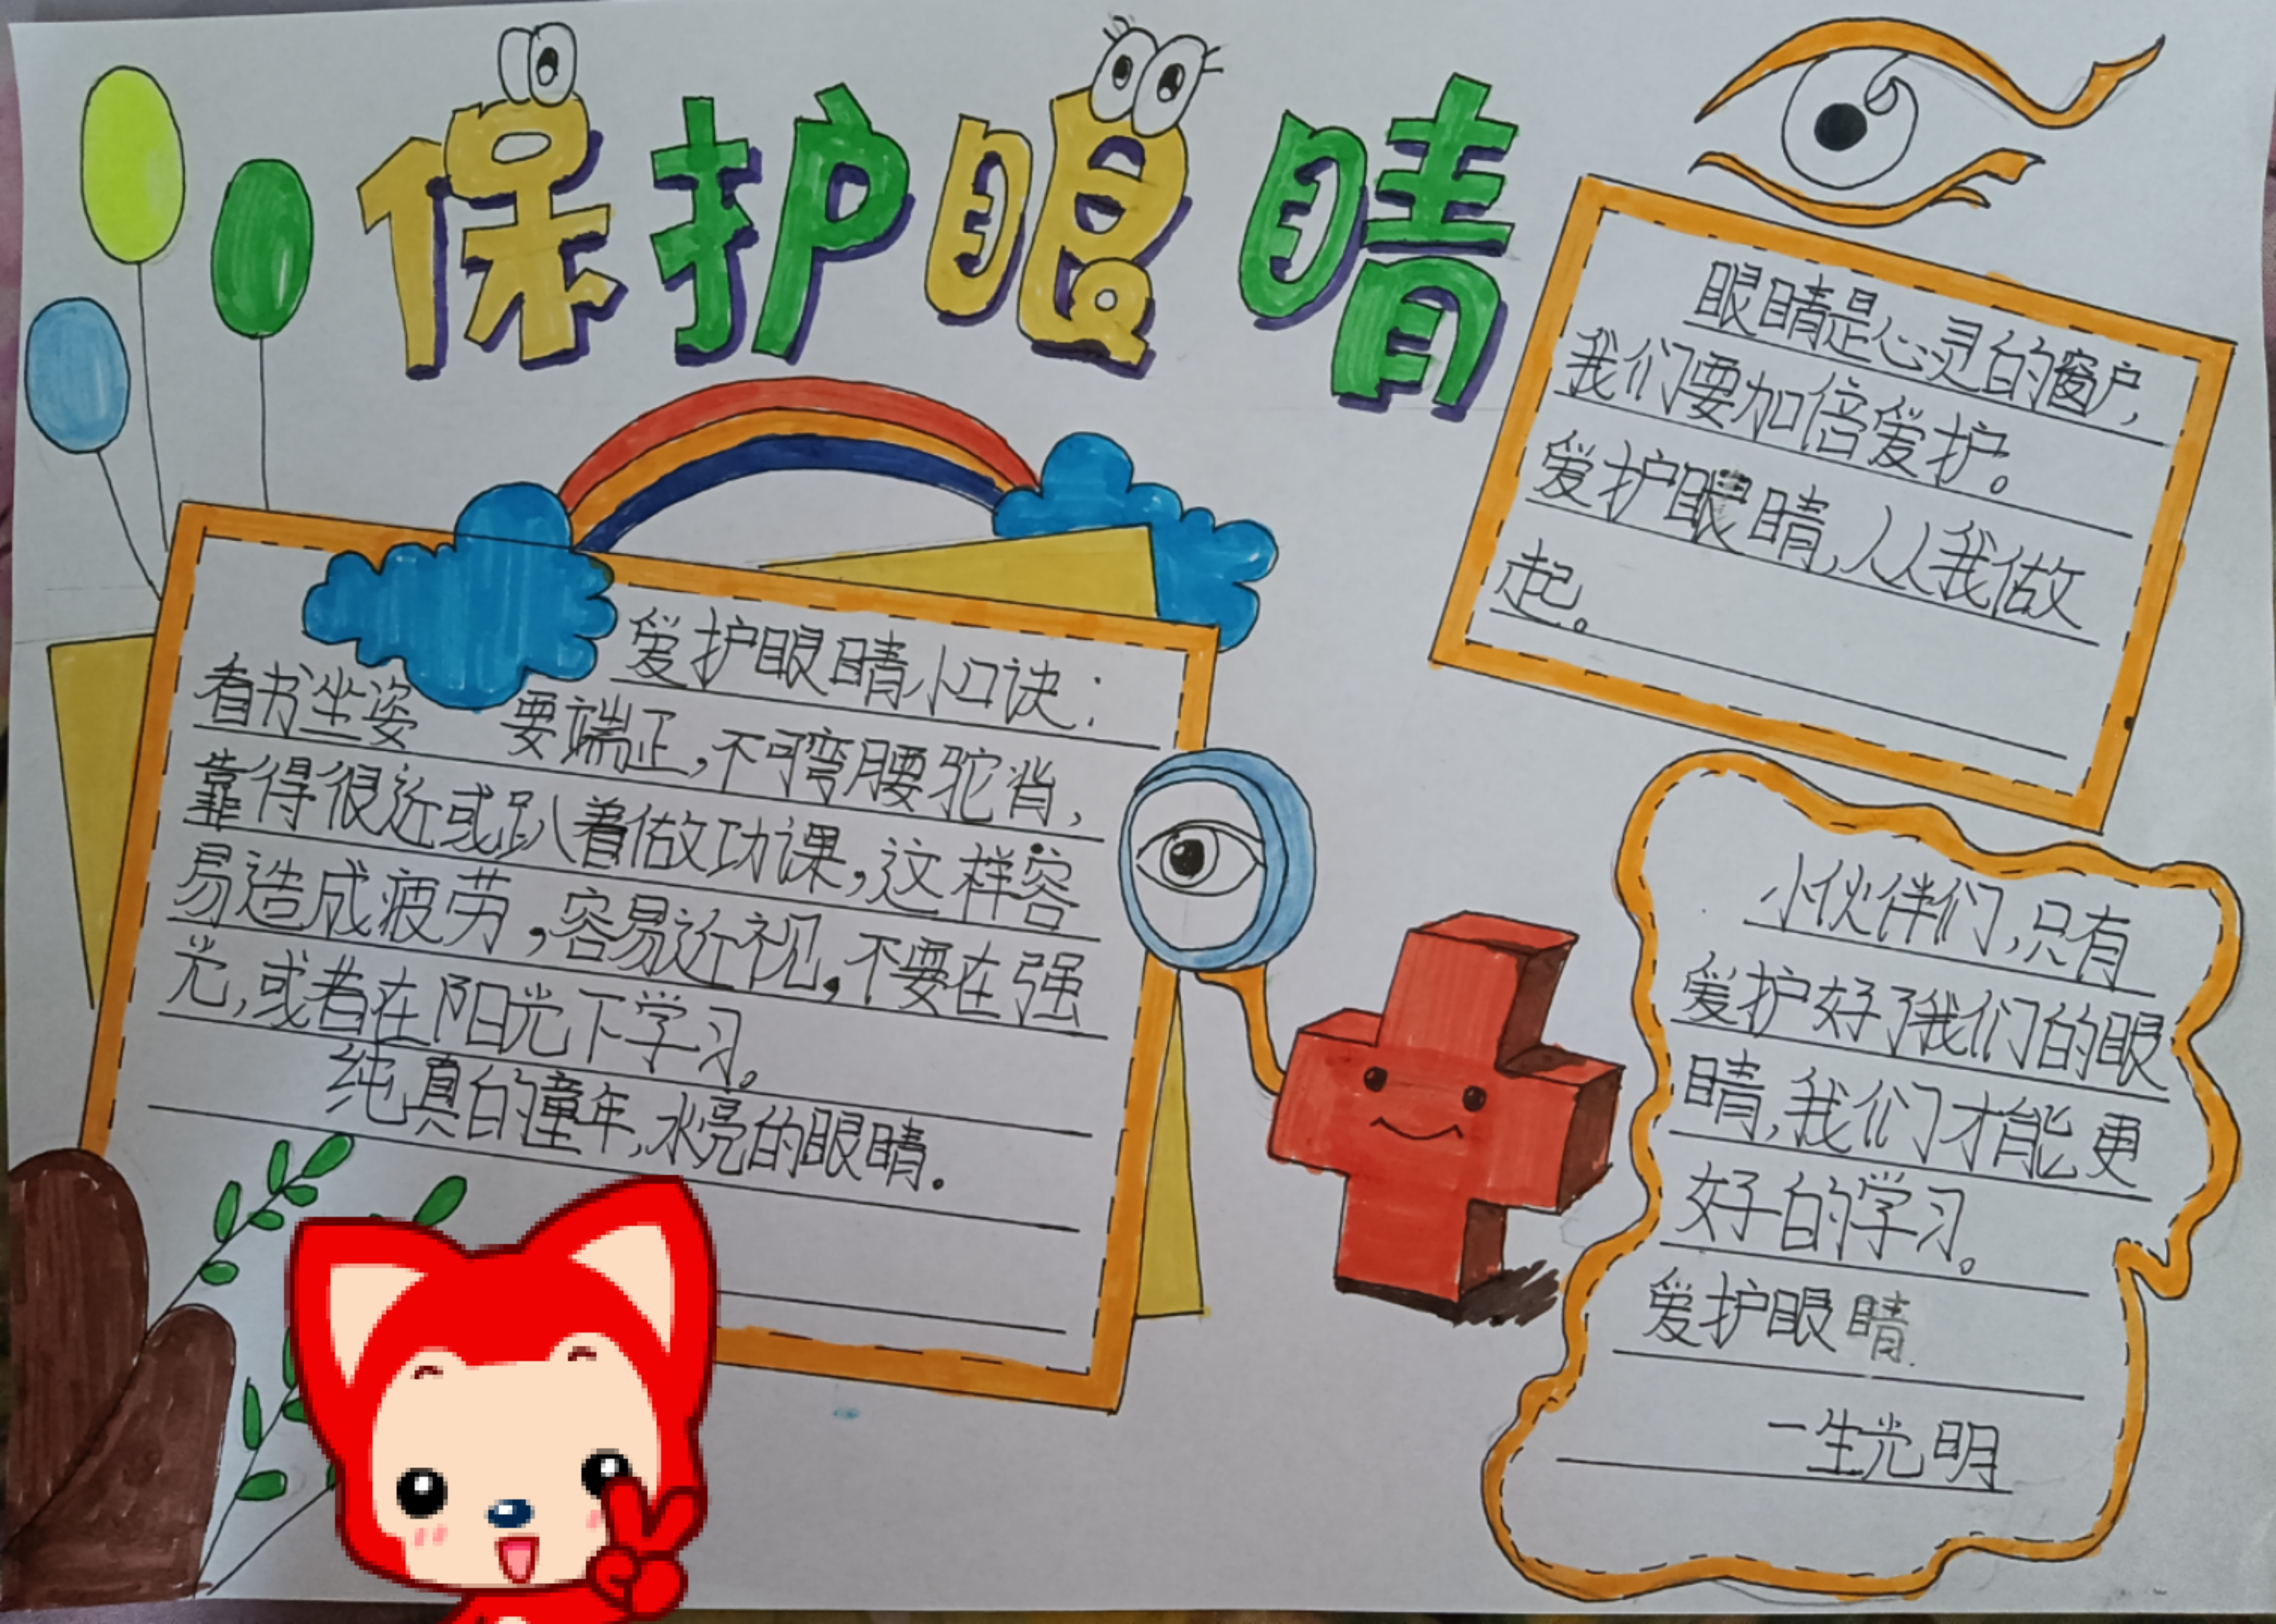 保护眼睛
爱护眼睛小口诀：
看书坐姿 要端正，不可弯腰驼背，
靠得很近或趴着做功课，这样容
易造成疲劳，容易近视。不要在强
光，或者在阳光下学习。
纯真的童年，水亮的眼睛。
眼睛是心灵的窗户，
我们要加倍爱护。
爱护眼睛，从我做
起。
小伙伴们，只有
爱护好了我们的眼
睛，我们才能更
好的学习。
爱护眼睛
一生光明